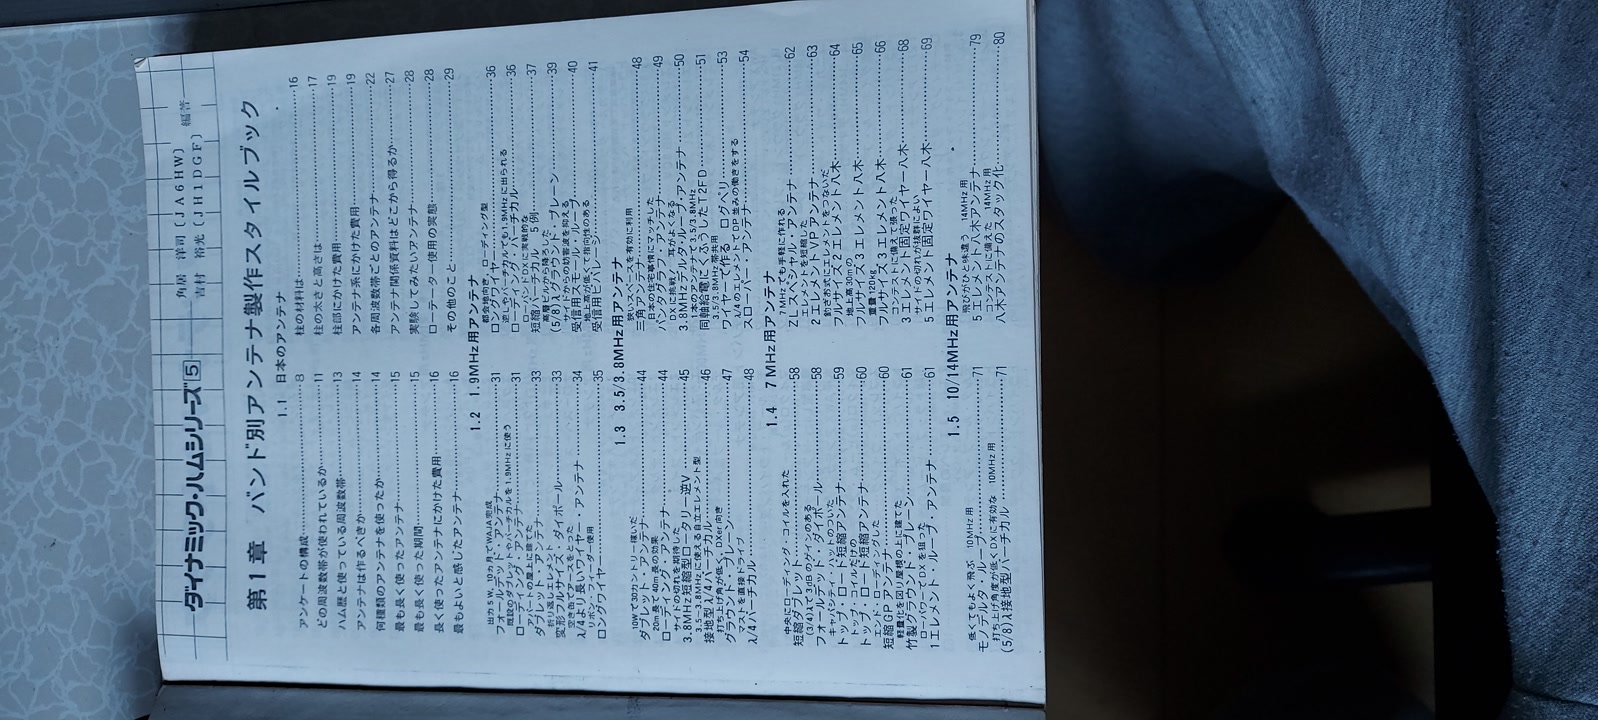 ダイナミック・ハムシリーズ 5
角居 洋司〔JA6HW〕
吉村 裕光〔JH1DGF〕 編著
第1章 バンド別アンテナ製作スタイルブック
1.1 日本のアンテナ
アンケートの構成……8
どの周波数帯が使われているか……11
ハム歴と使っている周波数帯……13
アンテナは作るべきか……14
何種類のアンテナを使ったか……14
最も長く使ったアンテナ……15
最も長く使った期間……15
長く使ったアンテナにかけた費用……16
最もよいと感じたアンテナ……16
柱の材料は……16
柱の太さと高さは……17
柱部にかけた費用……19
アンテナ系にかけた費用……19
各周波数帯ごとのアンテナ……22
アンテナ関係資料はどこから得るか……27
実験してみたいアンテナ……28
ローテーター使用の実態……28
その他のこと……29
1.2 1.9MHz用アンテナ
出力5W、10ヵ月でWAJA完成
フォールデッド・アンテナ……31
既設のダブレットやバーチカルを1.9MHzに使う
ローディング・アンテナ……31
アパートの屋上に建てた
ダブレット・アンテナ……33
折り返しエレメント
変形フルサイズ・ダイポール……33
空き缶でアースをとった
λ/4より長いワイヤー・アンテナ……34
リボン・フィーダー使用
ロングワイヤー……35
都会地向き、ローディング型
ロングワイヤー……36
逆LやバーチカルでもI.9MHzに出られる
ローディング・バーチカル……36
ローバンドDXに実戦的な
短縮バーチカル 5例……37
高層ビルから降ろした
(5/8)λグラウンド・プレーン……39
サイドからの妨害波を抑える
受信用スモール・ループ……40
地上高が低くて指向性のある
受信用ビバレージ……41
1.3 3.5/3.8MHz用アンテナ
10Wで30カントリー稼いだ
ダブレット・アンテナ……44
20m長で40m長の効果
ローディング・アンテナ……44
サイドの切れを期待した
3.8MHz短縮型ロータリー逆V……45
3.5〜3.8MHzに使える自立エレメント型
接地型λ/4バーチカル……46
打ち上げ角が低く、DXer向き
グラウンド・プレーン……47
マストを直接ドライブ
λ/4バーチカル……48
狭いスペースを有効に利用
三角アンテナ……48
日本の住宅事情にマッチした
ペンタグラム・アンテナ……49
DXに挑戦、耳がよくなる
3.8MHzデルタ・ループ・アンテナ……50
1本のアンテナで3.5/3.8MHz
同軸給電にくふうしたT2FD……51
3.5/3.8MHz帯共用
ワイヤーで作る ログペリ……53
λ/4のエレメントでDP並みの働きをする
スローパー・アンテナ……54
1.4 7MHz用アンテナ
中央にローディング・コイルを入れた
短縮ダブレット……58
(3/4)λで3dBのゲインのある
フォールデッド・ダイポール……58
キャパシティ・ハットのついた
トップ・ロード短縮アンテナ……59
トップ・コイルだけの
トップ・ロード短縮アンテナ……60
エンド・ローディングした
短縮GPアンテナ……60
軽量化を図り屋根の上に建てた
竹製グラウンド・プレーン……61
ローパワでDXを狙った
1エレメント・ループ・アンテナ……61
7MHzでも手軽に作れる
ZLスペシャル・アンテナ……62
エレメントを短縮した
2エレメントVPアンテナ……63
釣ざお式にエレメントをつないだ
フルサイズ3エレメント八木……64
地上高30mの
フルサイズ3エレメント八木……65
重量120kg
フルサイズ3エレメント八木……66
コンテストに備えて張った
3エレメント固定ワイヤー八木……68
サイドの切れが抜群によい
5エレメント固定ワイヤー八木……69
1.5 10/14MHz用アンテナ
低くてもよく飛ぶ 10MHz用
モノデルタループ……71
打ち上げ角度が低くDXに有効な 10MHz用
(5/8)λ接地型バーチカル……71
飛びがひと味違う 14MHz用
5エレメント八木アンテナ……79
コンテストに備えた 14MHz用
八木アンテナのスタック化……80